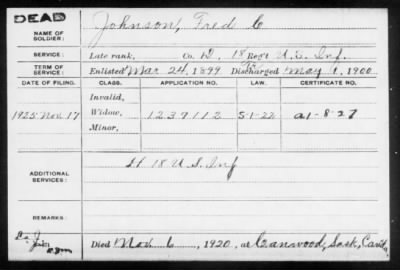 DEAD
NAME OF SOLDIER: Johnson, Fred C
SERVICE: Late rank, Co. D, 18 Reg't U.S. Inf.
TERM OF SERVICE: Enlisted Mar 24, 1899 Discharged May 1, 1900
DATE OF FILING. CLASS. APPLICATION NO. LAW. CERTIFICATE NO.
Invalid,
1925 Nov 17 Widow, 1239112 5-1-22 a1-8-27
Minor,
ADDITIONAL SERVICES: H 18 U.S. Inf
REMARKS:
Died Nov 6, 1920, at Canwood, Sask, Can